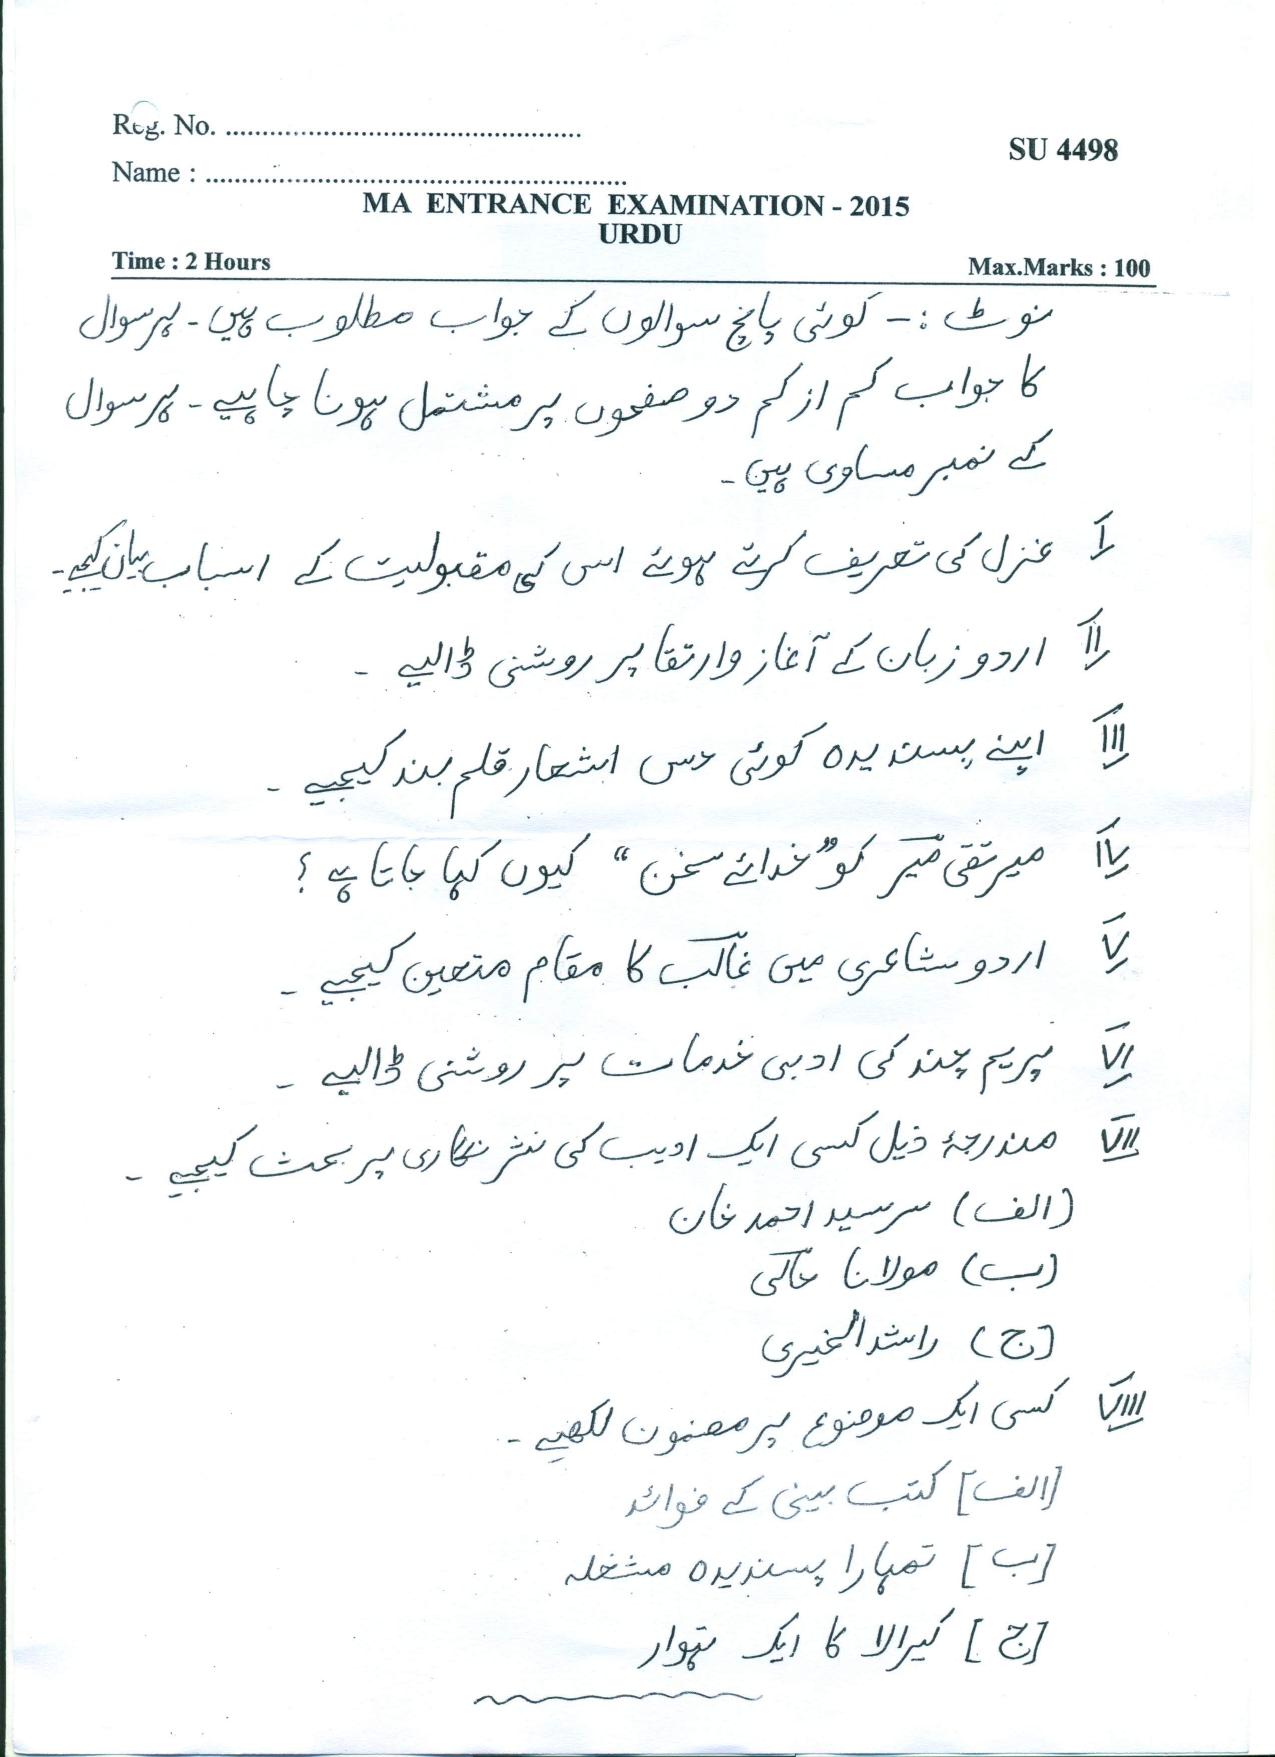 Reg. No. ................................................
SU 4498
Name : .........................................................
MA ENTRANCE EXAMINATION - 2015
URDU
Time : 2 Hours
Max.Marks : 100
نوٹ :- کوئی پانچ سوالوں کے جواب مطلوب ہیں۔ ہر سوال
کا جواب کم از کم دو صفحوں پر مشتمل ہونا چاہیے۔ ہر سوال
کے نمبر مساوی ہیں۔
I غزل کی تعریف کرتے ہوئے اس کی مقبولیت کے اسباب بیان کیجیے۔
II اردو زبان کے آغاز و ارتقا پر روشنی ڈالیے ۔
III اپنے پسندیدہ کوئی دس اشعار قلم بند کیجیے ۔
IV میر تقی میرؔ کو ”خدائے سخن“ کیوں کہا جاتا ہے ؟
V اردو شاعری میں غالبؔ کا مقام متعین کیجیے ۔
VI پریم چند کی ادبی خدمات پر روشنی ڈالیے ۔
VII مندرجۂ ذیل کسی ایک ادیب کی نثر نگاری پر بحث کیجیے ۔
(الف) سر سید احمد خان
(ب) مولانا حالیؔ
(ج) راشد الخیری
VIII کسی ایک موضوع پر مضمون لکھیے ۔
[الف] کتب بینی کے فوائد
[ب] تمہارا پسندیدہ مشغلہ
[ج] کیرالا کا ایک تہوار